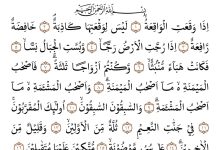 بِسْمِ اللَّهِ الرَّحْمَٰنِ الرَّحِيمِ
إِذَا وَقَعَتِ الْوَاقِعَةُ ۝١ لَيْسَ لِوَقْعَتِهَا كَاذِبَةٌ ۝٢ خَافِضَةٌ
رَّافِعَةٌ ۝٣ إِذَا رُجَّتِ الْأَرْضُ رَجًّا ۝٤ وَبُسَّتِ الْجِبَالُ بَسًّا ۝٥
فَكَانَتْ هَبَاءً مُّنبَثًّا ۝٦ وَكُنتُمْ أَزْوَاجًا ثَلَاثَةً ۝٧ فَأَصْحَابُ
الْمَيْمَنَةِ مَا أَصْحَابُ الْمَيْمَنَةِ ۝٨ وَأَصْحَابُ الْمَشْأَمَةِ مَا
أَصْحَابُ الْمَشْأَمَةِ ۝٩ وَالسَّابِقُونَ السَّابِقُونَ ۝١٠ أُولَٰئِكَ الْمُقَرَّبُونَ
فِي جَنَّاتِ النَّعِيمِ ۝١٢ ثُلَّةٌ مِّنَ الْأَوَّلِينَ ۝١٣ وَقَلِيلٌ مِّنَ
مُّتَّكِئِينَ عَلَيْهَا مُتَقَابِلِينَ